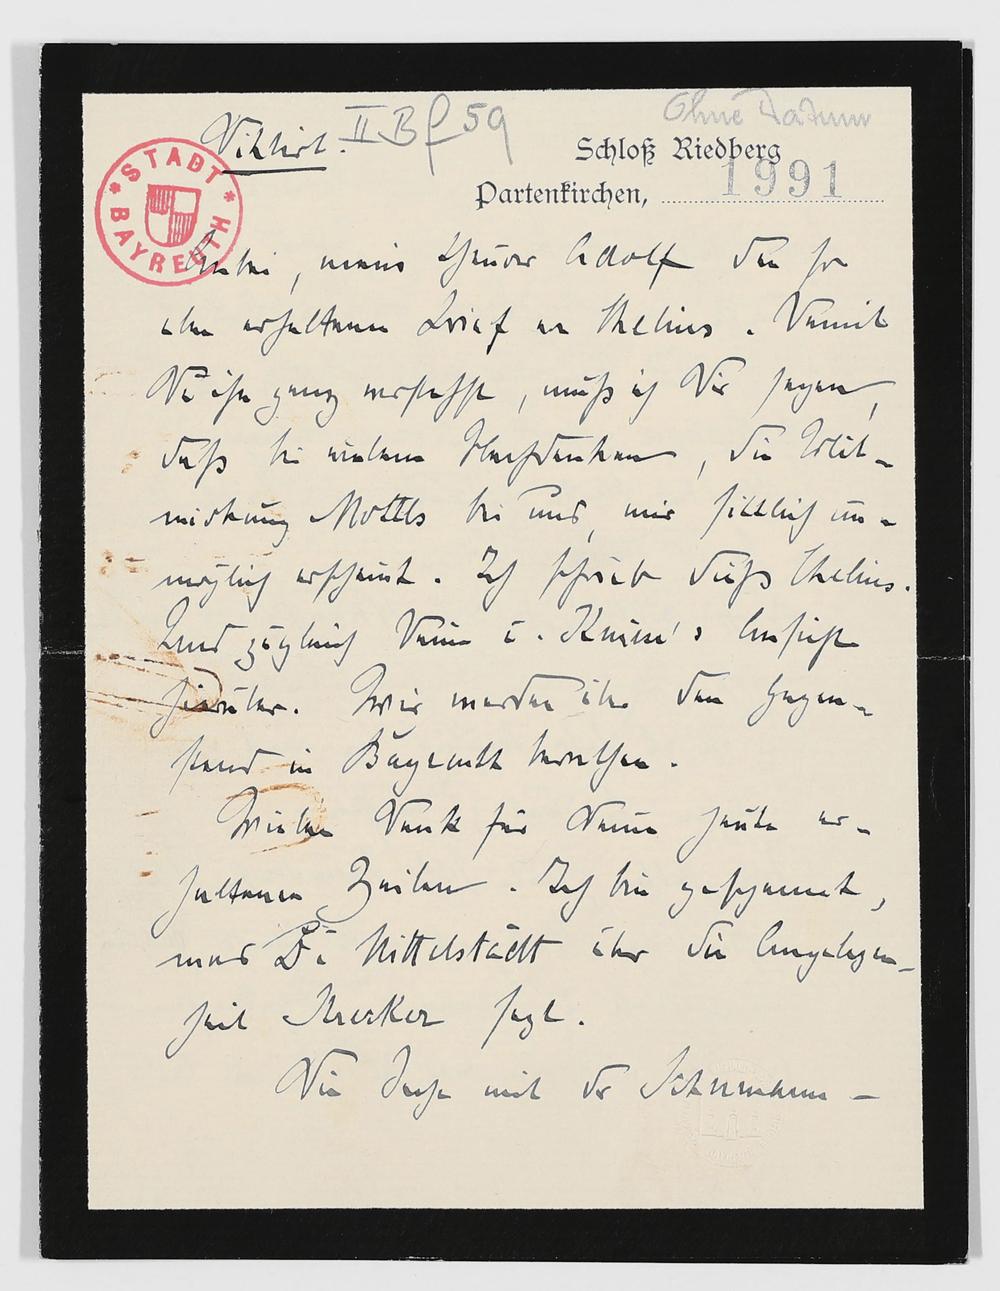 Diktirt. II Bf 59 Ohne Datum
Schloß Riedberg
Partenkirchen, 1991
STADT BAYREUTH
Anbei, mein theurer Adolf den so
eben erhaltenen Brief an Thelius. Damit
Du ihn ganz verstehst, muß ich Dir sagen,
daß bei vielem Nachdenken, die Mit-
wirkung Mottls bei uns, mir sittlich un-
möglich erscheint. Ich schrieb dieß Thelius.
Und zugleich Deine u. Kniese's Ansicht
hierüber. Wir werden über den Gegen-
stand in Bayreuth berathen.
Vielen Dank für Deine heute er-
haltenen Zeilen. Ich bin gespannt,
was Dr Mittelstädt über die Angelegen-
heit sagt.
Die Sache mit der Schumann –